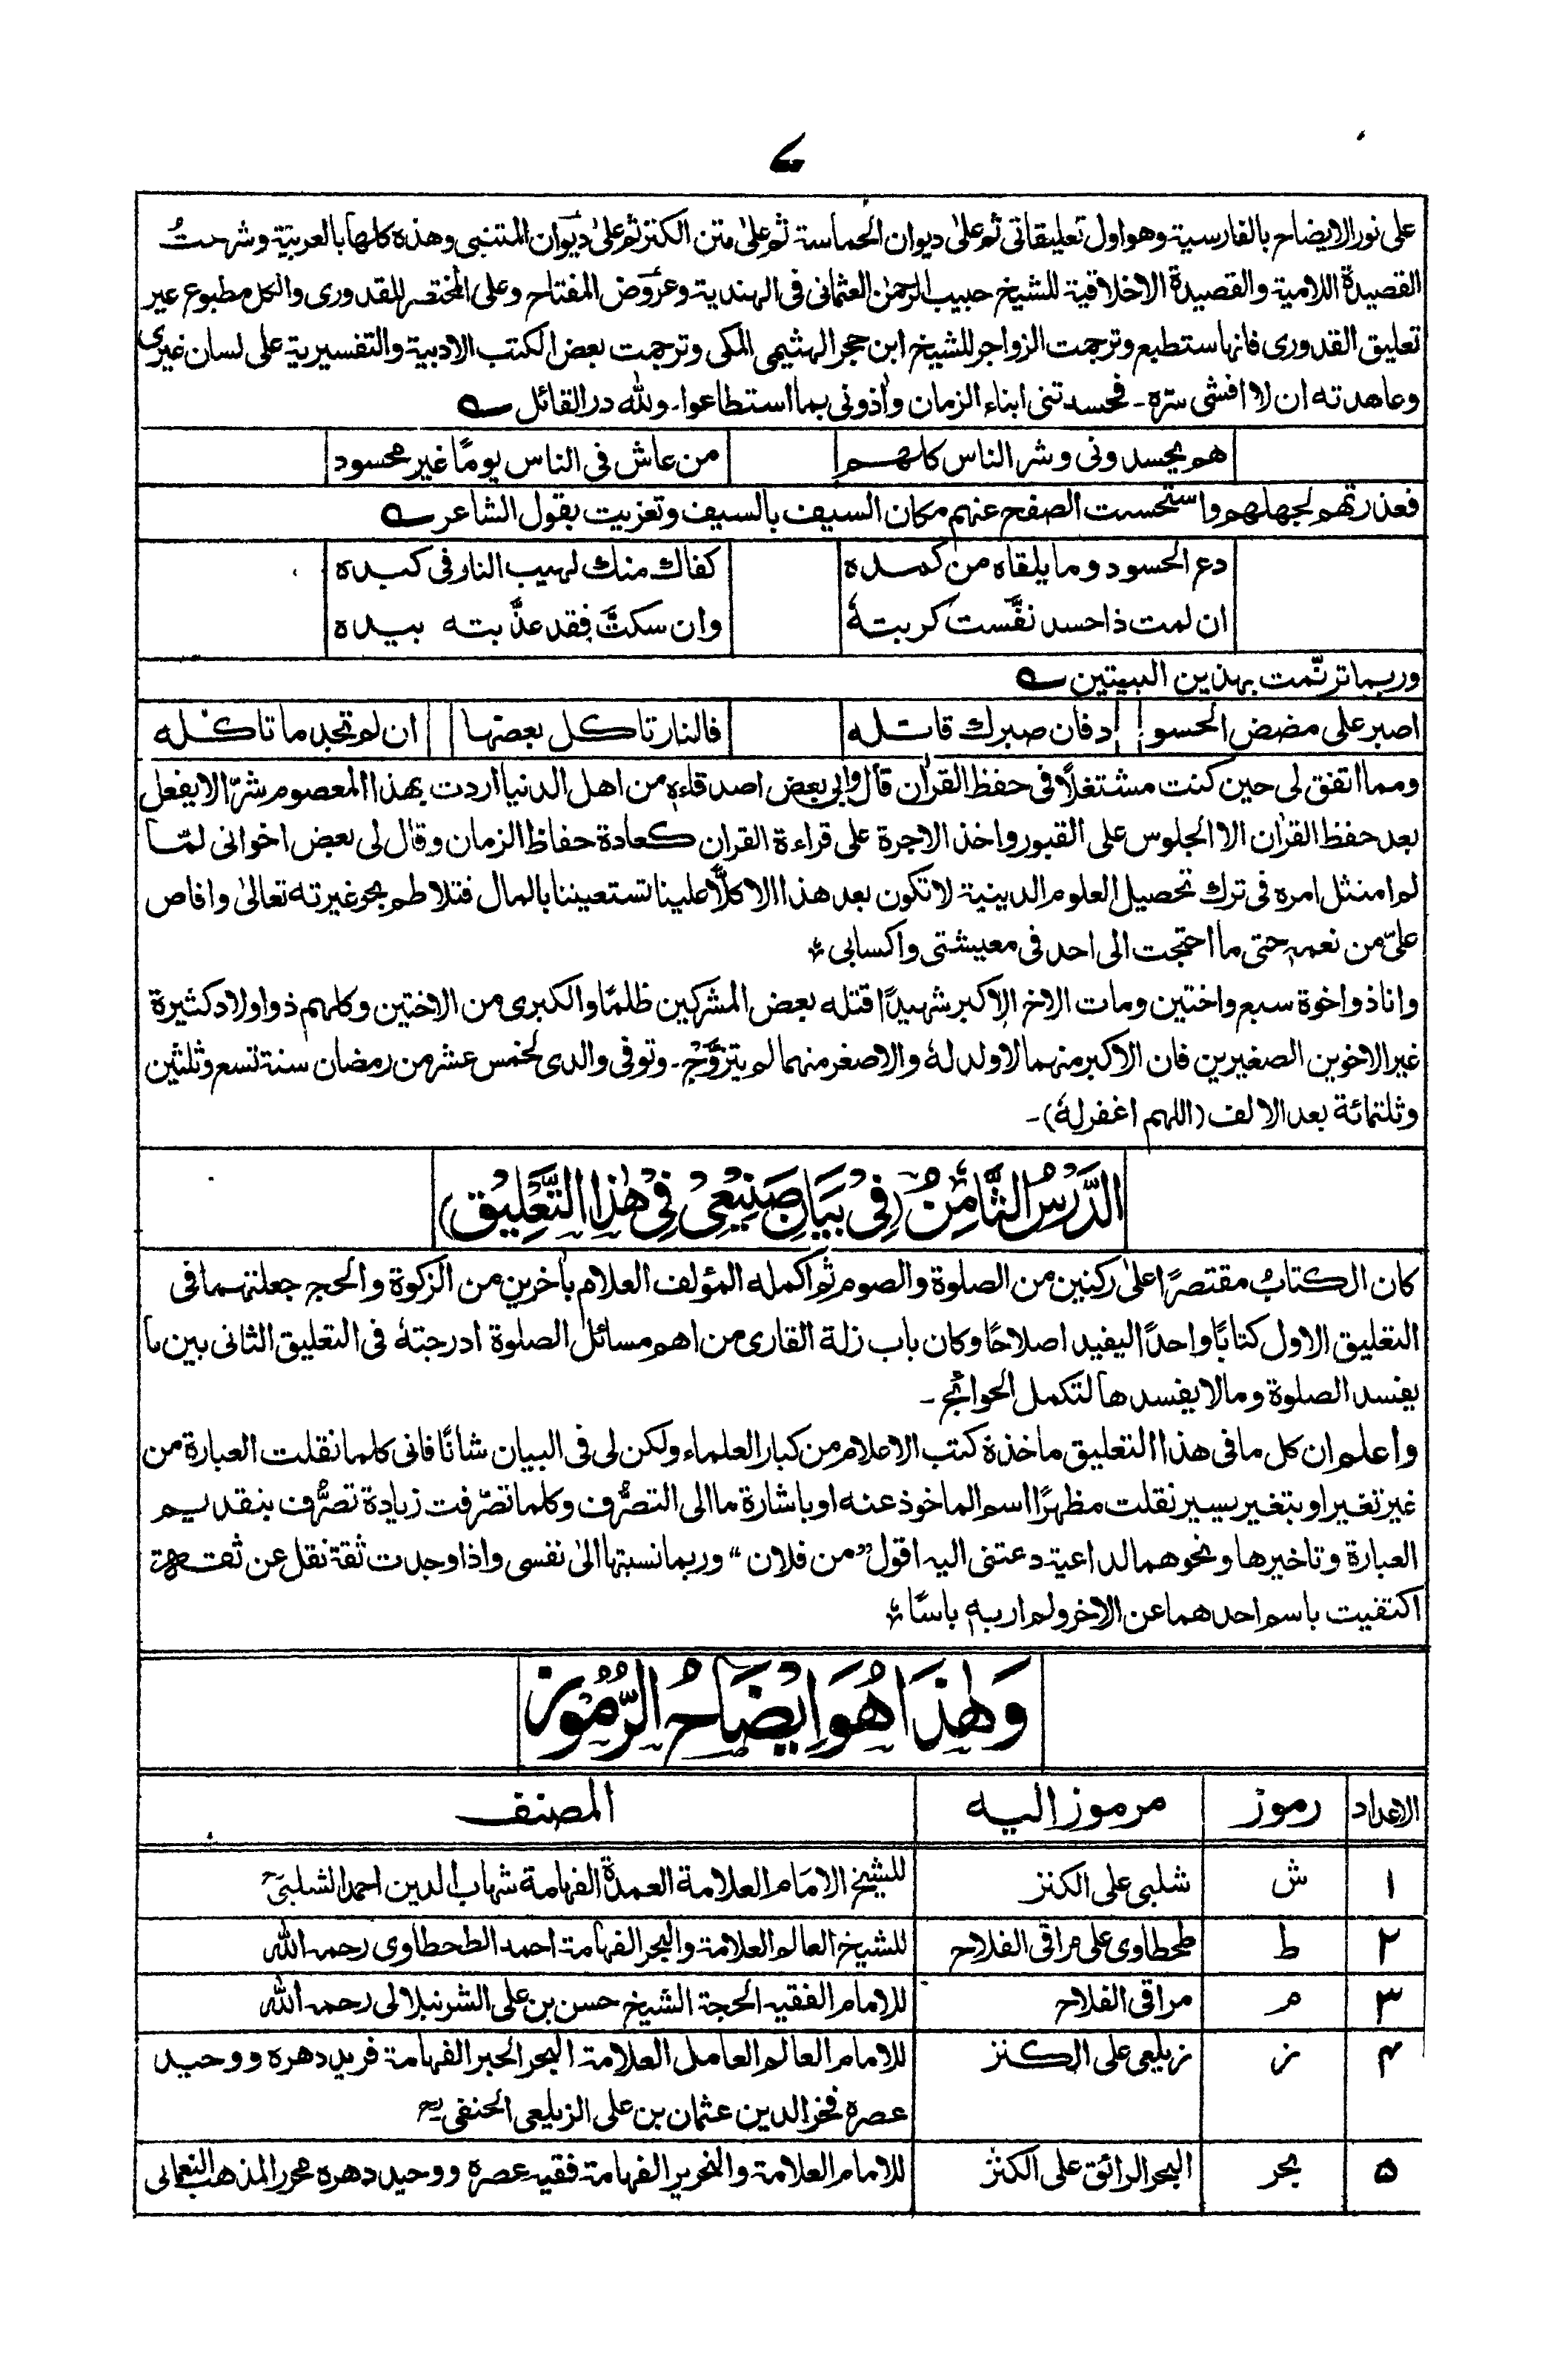 ۷
على نور الايضاح بالفارسية وهو اول تعليقاتى ثم على ديوان الحماسة ثم على متن الكنز ثم على ديوان المتنبى وهذه كلها بالعربية وشرحتُ
القصيدة اللامية والقصيدة الاخلاقية للشيخ حبيب الرحمٰن العثمانى فى الهندية وعروض المفتاح وعلى المختصر للقدورى والكل مطبوع غير
تعليق القدورى فانها ستطبع وترجمت الزواجر للشيخ ابن حجر الهثيمى المكى وترجمت بعض الكتب الادبية والتفسيرية على لسان غيرى
وعاهدته ان لا افشى سرّه ـ فحسدتنى ابناء الزمان وأذونى بما استطاعوا ـ ولله در القائل ؎
هم يحسدونى وشر الناس كلهم من عاش فى الناس يومًا غير محسود
فعذرتهم لجهلهم واستحسنت الصفح عنهم مكان السيف بالسيف وتعزيت بقول الشاعر ؎
دع الحسود وما يلقاه من كمده كفاك منك لهيب النار فى كبده
ان لمت ذا حسد نفّست كربتهٗ وان سكتَّ فقد عذّبته بيده
وربما ترنّمت بهذين البيتين ؎
اصبر على مضض الحسو د فان صبرك قاتله فالنار تاكل بعضها ان لم تجد ما تاكله
ومما اتفق لى حين كنت مشتغلًا فى حفظ القرآن قال لابى بعض اصدقاءه من اهل الدنيا اردت بهذا المعصوم شرّا الا يفعل
بعد حفظ القرآن الا الجلوس على القبور واخذ الاجرة على قراءة القرآن كعادة حفاظ الزمان وقال لى بعض اخوانى لمّا
لم امتثل امره فى ترك تحصيل العلوم الدينية لا تكون بعد هذا الا كلًّا علينا تستعيننا بالمال فتلاطم بحر غيرته تعالىٰ وافاض
علىّ من نعمه حتى ما احتجت الى احد فى معيشتى واكسابى
وانا ذو اخوة سبع واختين ومات الاخ الاكبر شهيدًا قتله بعض المشركين ظلمًا والكبرى من الاختين وكلهم ذو اولاد كثيرة
غير الاخوين الصغيرين فان الاكبر منهما لا ولد لهٗ والاصغر منهما لم يتزوّج ـ وتوفى والدى لخمس عشر من رمضان سنة تسع وثلثين
وثلثمائة بعد الالف (اللهم اغفر لهٗ) ـ
الدَّرْسُ الثَّامِنُ (فِىْ بَيَانِ صَنِيْعِىْ فِىْ هٰذَا التَّعْلِيْقِ)
كان الكتابُ مقتصرًا على ركنين من الصلوة والصوم ثم اكمله المؤلف العلام بأخرين من الزكوة والحج جعلتهما فى
التعليق الاول كتابًا واحدًا ليفيد اصلاحًا وكان باب زلة القارى من اهم مسائل الصلوة ادرجتهٗ فى التعليق الثانى بين ما
يفسد الصلوة وما لا يفسدها لتكمل الحوائج ـ
واعلم ان كل ما فى هذا التعليق ماخذة كتب الاعلام من كبار العلماء ولكن لى فى البيان شانًا فانى كلما نقلت العبارة من
غير تغير او بتغير يسير نقلت مظهرًا اسم الماخوذ عنه او باشارة ما الى التصرُّف وكلما تصرّفت زيادة تصرُّف بتقديم
العبارة وتاخيرها ونحوهما لداعية دعتنى اليه اقول ”من فلان“ وربما نسبتها الىٰ نفسى واذا وجدت ثقة نقل عن ثقة
اكتفيت باسم احدهما عن الاخر ولم ار به باسًا
وَهٰذَا هُوَ اِيْضَاحُ الرُّمُوْزِ
الاعداد رموز مرموز اليه المصنف
۱ ش شلبى على الكنز للشيخ الامام العلامة العمدة الفهامة شهاب الدين احمد الشلبىؒ
۲ ط طحطاوى على مراقى الفلاح للشيخ العالم العلامة والبحر الفهامة احمد الطحطاوى رحمه الله
۳ م مراقى الفلاح للامام الفقيه الحجة الشيخ حسن بن على الشرنبلالى رحمه الله
۴ ز زيلعى على الكنز للامام العالم العامل العلامة البحر الحبر الفهامة فريد دهره ووحيد
عصره فخر الدين عثمان بن على الزيلعى الحنفىؒ
۵ بحر البحر الرائق على الكنز للامام العلامة والنحرير الفهامة فقيه عصره ووحيد دهره محرر المذهب النعمانى